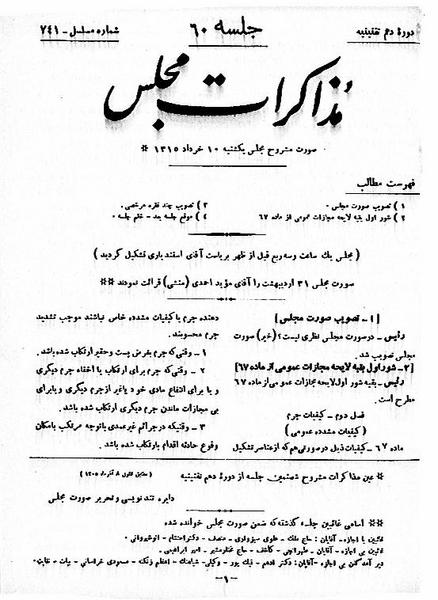 دورهٔ دهم تقنینیه
جلسه ۶۰
شماره مسلسل - ۷۴۱
مذاکرات مجلس
صورت مشروح مجلس یکشنبه ۱۰ خرداد ۱۳۱۵ *
فهرست مطالب
۱ ) تصویب صورت مجلس.
۲ ) شور اول بقیه لایحه مجازات عمومی از ماده ۶۷
۳ ) تصویب چند فقره مرخصی.
۴ ) موقع جلسه بعد - ختم جلسه
( مجلس یک ساعت و سه ربع قبل از ظهر بریاست آقای اسفندیاری تشکیل گردید )
صورت مجلس ۳۱ اردیبهشت را آقای مؤید احمدی (منشی) قرائت نمودند **
[ ۱ - تصویب صورت مجلس ]
رئیس - در صورت مجلس نظری نیست؟ (خیر) صورت
مجلس تصویب شد.
[۲ - شور اول بقیه لایحه مجازات عمومی از ماده ۶۷]
رئیس - بقیه شور اول لایحه مجازات عمومی از ماده ۶۷
مطرح است.
فصل دوم - کیفیات جرم
( کیفیات مشدده عمومی )
ماده ۶۷ - کیفیات ذیل در صورتی هم که از عناصر تشکیل
دهنده جرم یا کیفیات مشدده خاص نباشند موجب تشدید
جرم محسوبند.
۱ - وقتی که جرم بغرض پست و حقیر ارتکاب شده باشد.
۲ - وقتی که جرم برای ارتکاب یا اخفاء جرم دیگری
و یا برای انتفاع مادی خود یا غیر از جرم دیگری و یا برای
بی مجازات ماندن جرم دیگری ارتکاب شده باشد.
۳ - وقتیکه در جرائم غیر عمدی با توجه مرتکب بامکان
وقوع حادثه اقدام بارتکاب شده باشد.
* عین مذاکرات مشروح شصتمین جلسه از دورهٔ دهم تقنینیه
( مطابق قانون ۸ آذر ماه ۱۳۰۵ )
دایره تندنویسی و تحریر صورت مجلس
** اسامی غائبین جلسه گذشته که ضمن صورت مجلس خوانده شده
غائبین با اجازه - آقایان : حاج ملک - طوسی - منصف - دکتر احتشام - انوشیروانی
غائبین بی اجازه - آقایان - طهرانچی - کاشف - حاج - امیر ابراهیمی
دیر آمدگان بی اجازه - آقایان : دکتر ادهم - نیک پور - وکیلی - شباهنگ - اعظم زنگنه - مسعودی خراسانی - بیات -
- ۱ -